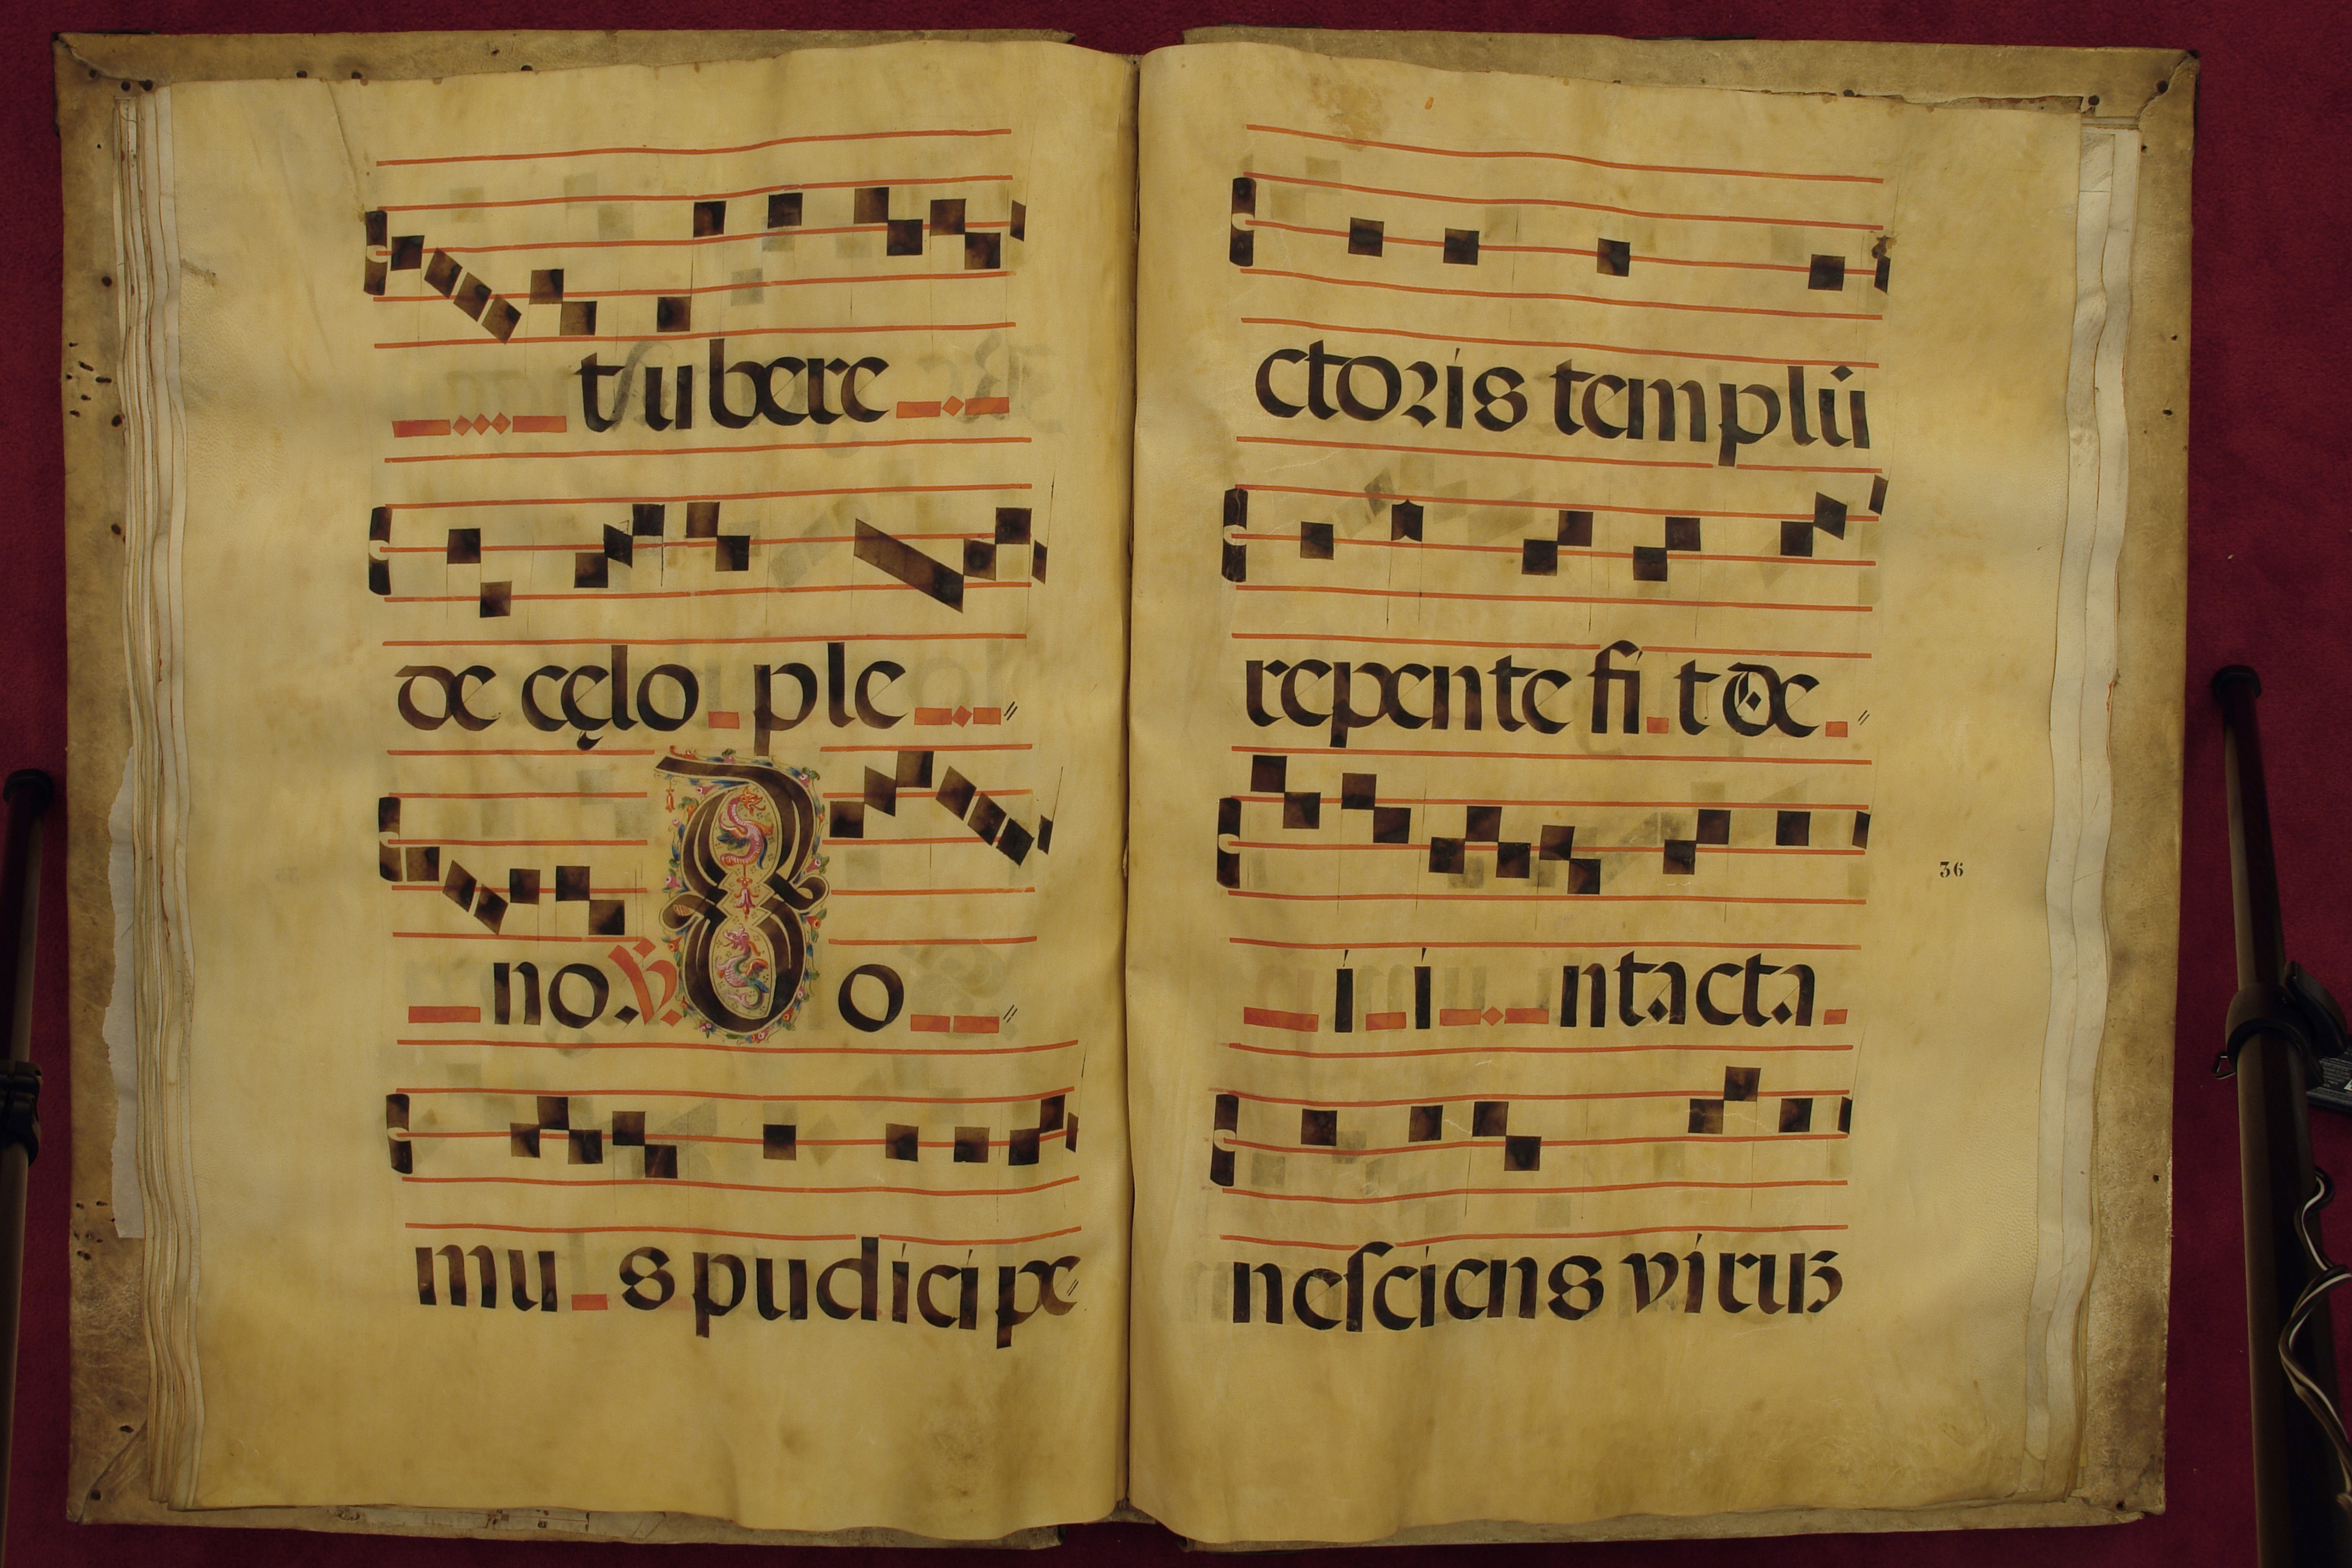 t ubere
de cęlo ple
no. ℣. Do
mu s pudici pe
ctoris templū
repente fi t De
i i ntacta
nesciens viruʒ
36